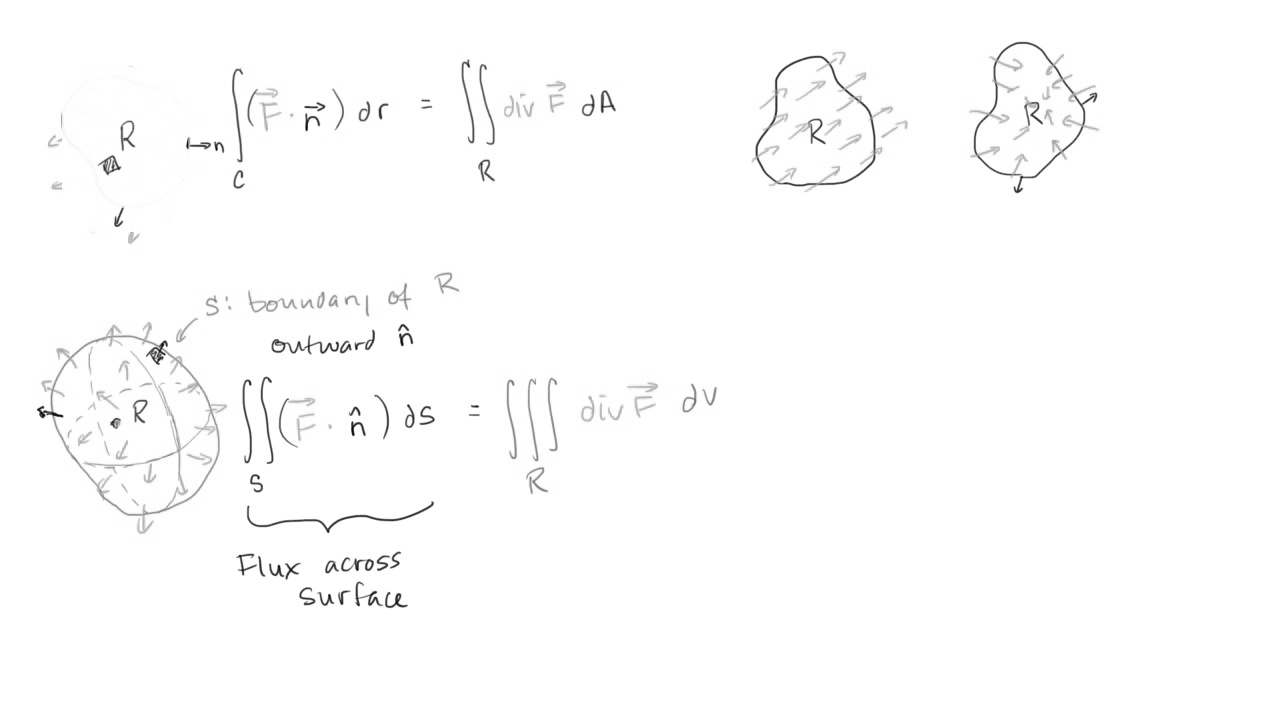 R
↦n ∫_C (F⃗ · n⃗) dr = ∬_R div F⃗ dA
R
R
S: boundary of R
outward n̂
R
∬_S (F⃗ · n̂) dS = ∭_R div F⃗ dV
Flux across
surface